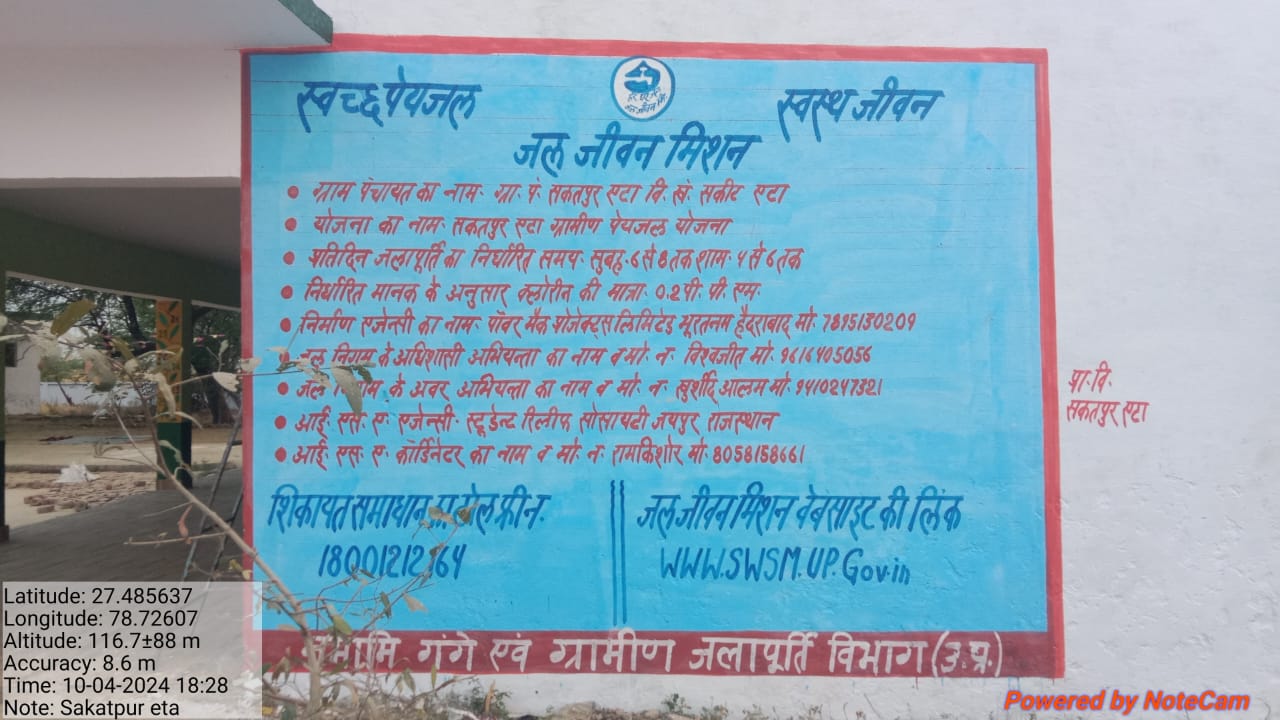 स्वच्छ पेयजल
स्वस्थ जीवन
जल जीवन मिशन
• ग्राम पंचायत का नाम- ग्रा. पं. सकतपुर एटा वि. खं. सकीट एटा
• योजना का नाम- सकतपुर एटा ग्रामीण पेयजल योजना
• प्रतिदिन जलापूर्ति का निर्धारित समय- सुबह-६ से ८ तक शाम- ५ से ६ तक
• निर्धारित मानक के अनुसार क्लोरीन की मात्रा- 0.2 पी. पी. एम.
• निर्माण एजेन्सी का नाम- पॉवर मैक प्रोजेक्ट्स लिमिटेड भूरतनम हैदराबाद मो. 7895130209
• जल निगम के अधिशासी अभियन्ता का नाम व मो. न. विश्वजीत मो. 9616405056
• जल निगम के अवर अभियन्ता का नाम व मो. न. खुर्शीद आलम मो. 9410247321
• आई. एस. ए. एजेन्सी- स्टूडेन्ट रिलीफ सोसायटी जयपुर राजस्थान
• आई. एस. ए. कॉर्डिनेटर का नाम व मो. न. रामकिशोर मो. 8058158661
शिकायत समाधान फ्रीन.
जल जीवन मिशन वेबसाइट की लिंक
WWW.SWSM.UP.Gov.in
नमामि गंगे एवं ग्रामीण जलापूर्ति विभाग (उ.प्र.)
प्रा. वि.
सकतपुर एटा
Latitude: 27.485637
Longitude: 78.72607
Altitude: 116.7±88 m
Accuracy: 8.6 m
Time: 10-04-2024 18:28
Note: Sakatpur eta
Powered by NoteCam